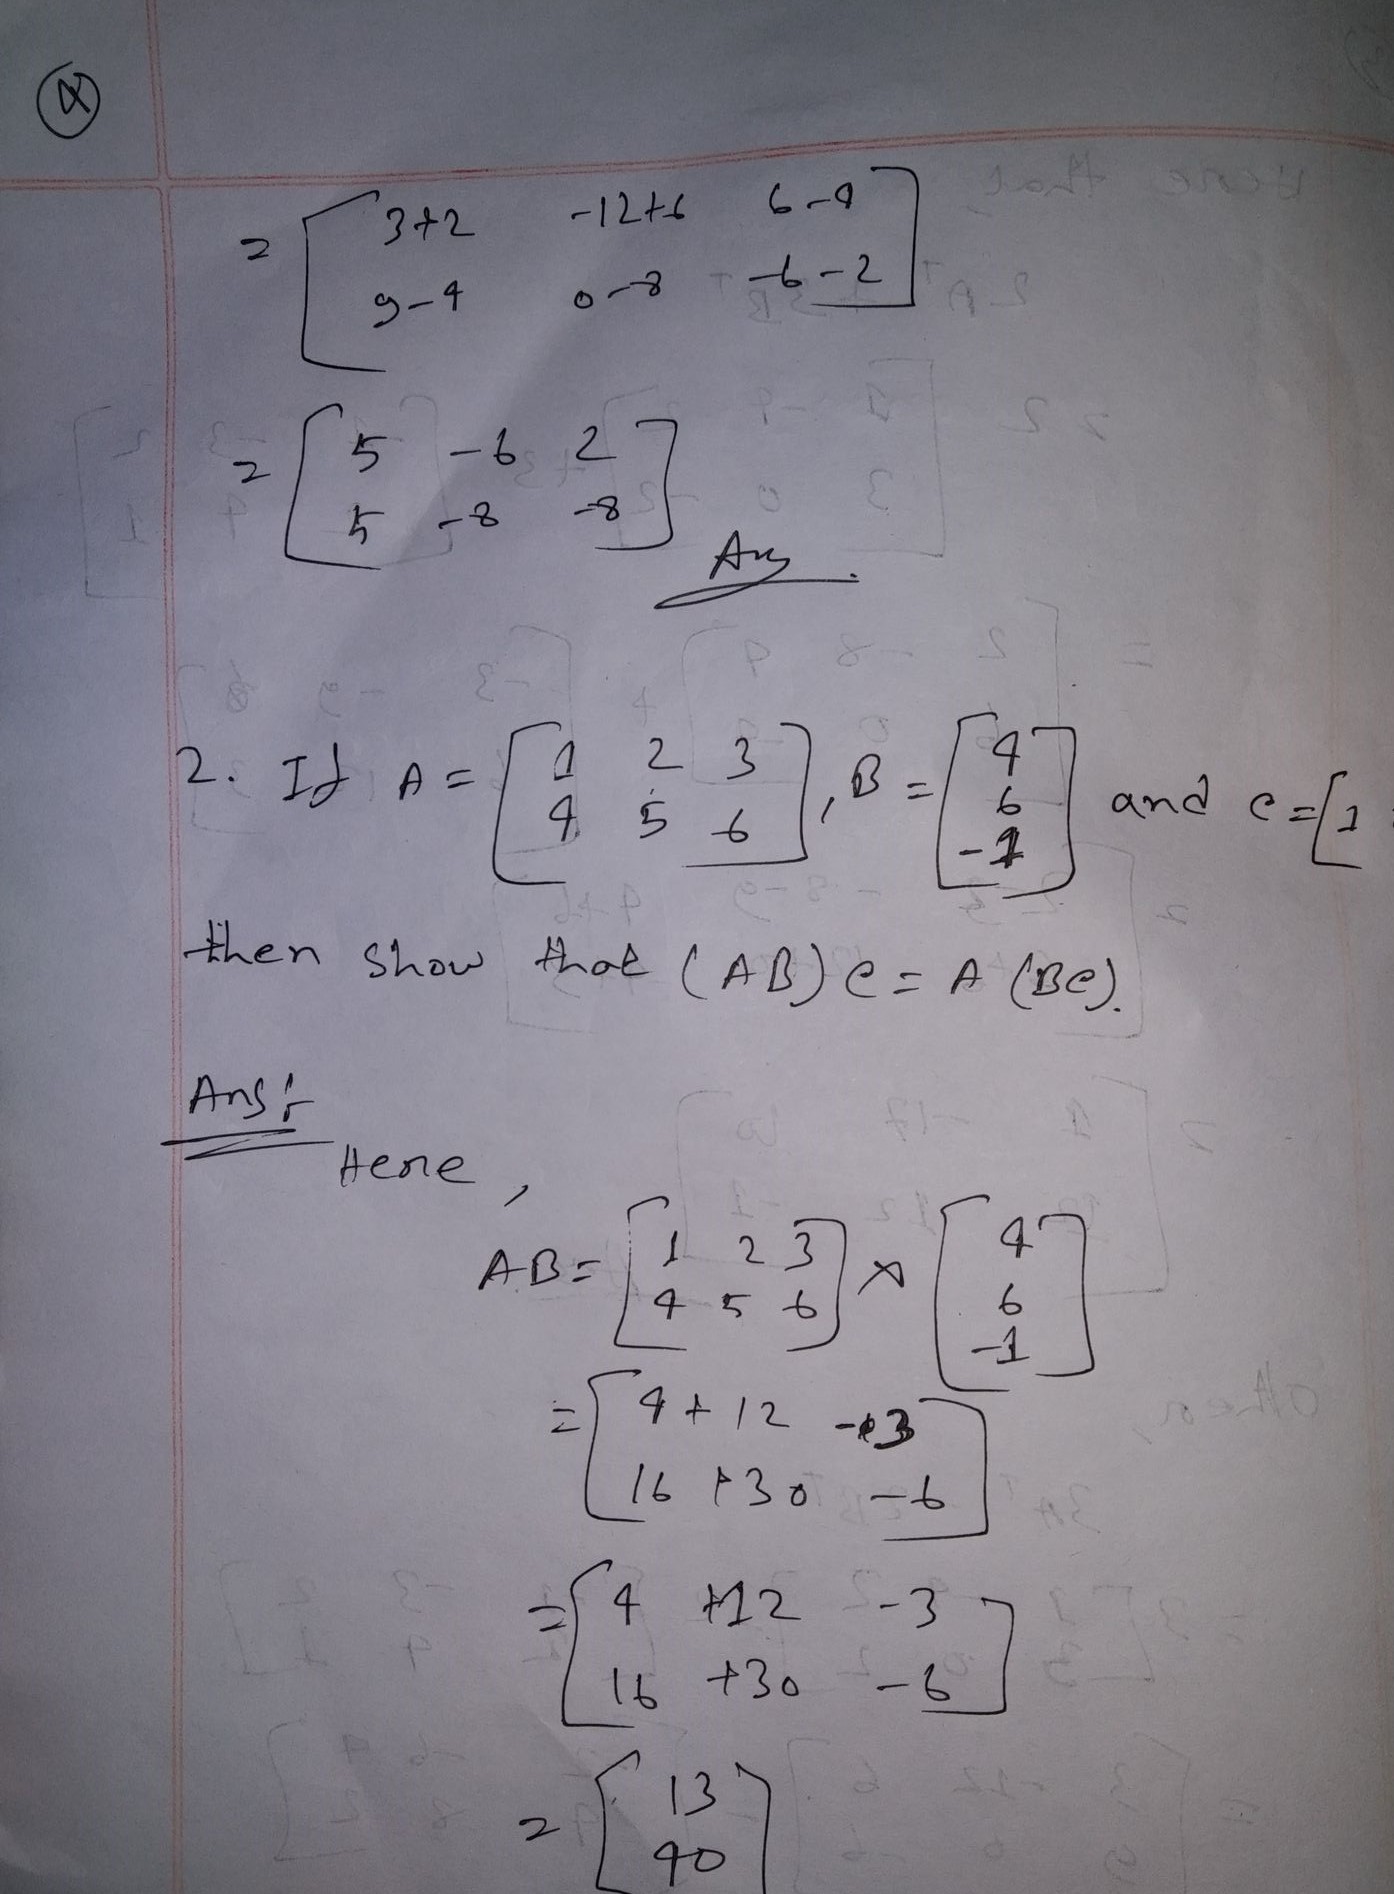 4
= [ 3+2 -12+6 6-4
9-4 0-8 -6-2 ]
= [ 5 -6 2
5 -8 -8 ]
Ans.
2. If A = [ 1 2 3
4 5 6 ], B = [ 4
6
-1 ] and C = [ 1
then show that (AB)C = A(BC).
Ans:
Here,
AB = [ 1 2 3
4 5 6 ] × [ 4
6
-1 ]
= [ 4 + 12 -3
16 +30 -6 ]
= [ 4 +12 -3
16 +30 -6 ]
= [ 13
40 ]